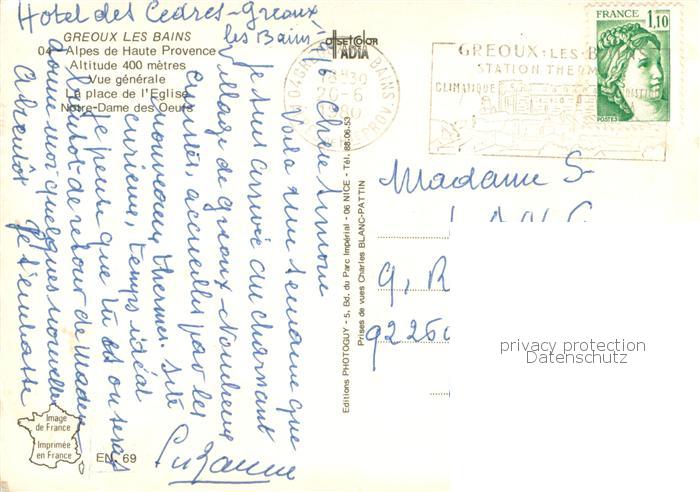 Hotel des Cèdres - Greoux
les Bains
GREOUX LES BAINS
04 - Alpes de Haute Provence
Altitude 400 mètres
Vue générale
La place de l'Eglise
Notre-Dame des Oeufs
Chère Simone
Voilà une semaine que
je suis arrivée au charmant
village de Greoux. Nombreux
curistes, accueillis par les
nouveaux thermes. Site
curieux, temps idéal
Je pense que tu es ou seras
bientôt de retour de
donne moi quelques nouvelles
A bientôt Je t'embrasse
Suzanne
Image
de France
Imprimée
en France
EN. 69
offset color
ADIA
Editions PHOTOGUY - 5, Bd. du Parc Impérial - 06 NICE - Tél. 88.06.53
Prises de vues Charles BLANC-PATTIN
18H30
26-6
1980
GREOUX-LES-B
STATION THERM
CLIMATIQUE
FRANCE
1,10
POSTES
Madame S
9, R
92260
privacy protection
Datenschutz